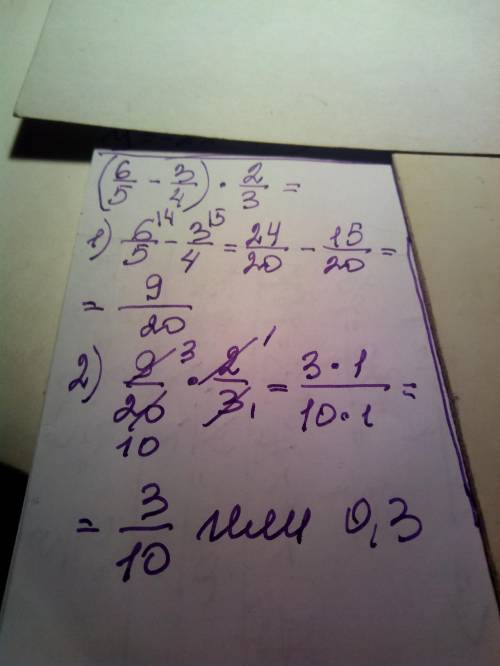 (6/5 - 3/4) · 2/3 =
1) 6/5^14 - 3/4^15 = 24/20 - 15/20 =
= 9/20
2) 9/20 3/10 · 2/3 1/1 = 3·1/10·1 =
= 3/10 или 0,3